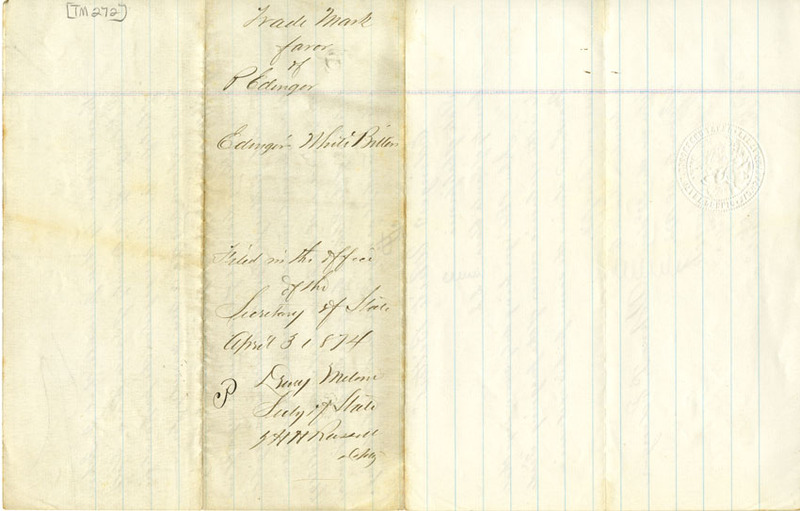 [TM 272]
Trade Mark
favor
of
P Edinger
Edinger's White Bitters
Filed in the office
of the
Secretary of State
April 3 1874
Drury Melone
Secty of State
H H Russell
Depty